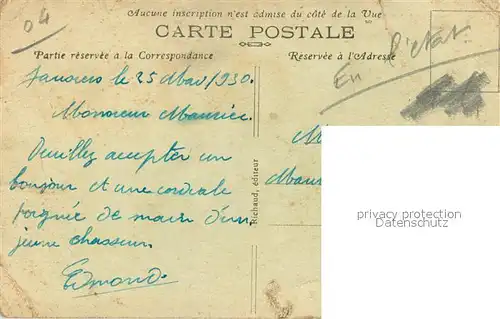 04
Aucune inscription n'est admise du côté de la Vue
CARTE POSTALE
Partie réservée à la Correspondance
Réservée à l'Adresse
En l'état
le 25 Mai 1930.
Monsieur Maurice.
Veuillez accepter un
bonjour et une cordiale
poignée de main d'un
jeune chasseur.
Edmond.
Richaud, éditeur
M
Maur
privacy protection
Datenschutz